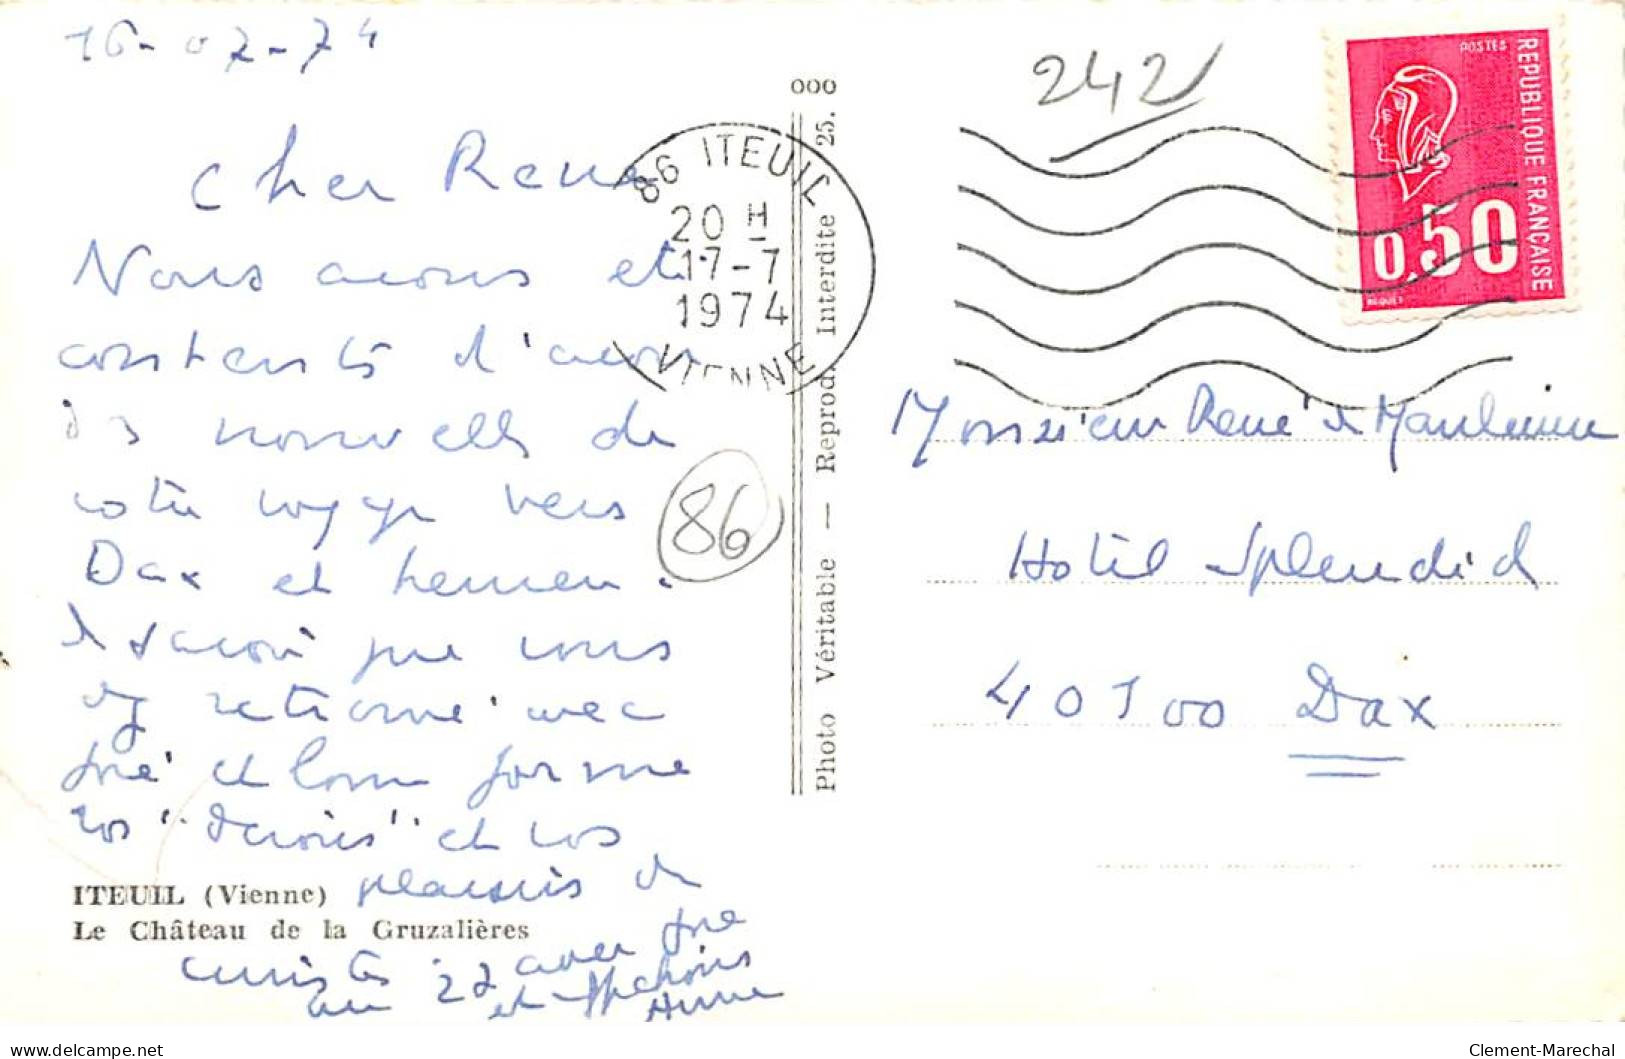 16-07-74
Cher René
Nous avons été
contents d'avoir
des nouvelles de
votre voyage vers
Dax et heureux
de savoir que vous
y retrouvé avec
joie et bonne forme
vos "devoirs" et vos
plaisirs de
curistes.
au 22 avec joie
et
Anne
ITEUIL (Vienne)
Le Château de la Gruzalières
86
Photo Véritable — Reprod. Interdite 25.
ooo
86 ITEUIL
20 H
17-7
1974
VIENNE
242
POSTES
REPUBLIQUE FRANÇAISE
0,50
BEQUET
Monsieur René de
Hotel Splendid
40100 Dax
delcampe.net
Clement-Marechal